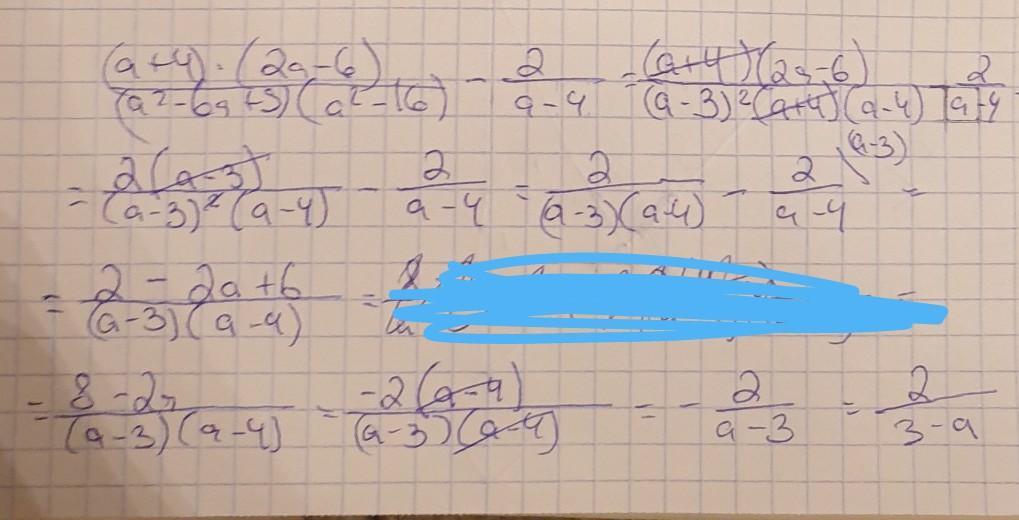 (a+4)·(2a-6)/(a²-6a+9)(a²-16) - 2/a-4 = (a+4)(2a-6)/(a-3)²(a+4)(a-4) - 2/a-4
= 2(a-3)/(a-3)²(a-4) - 2/a-4 = 2/(a-3)(a-4) - 2/a-4 \(a-3) =
= 2-2a+6/(a-3)(a-4) =
= 8-2a/(a-3)(a-4) = -2(a-4)/(a-3)(a-4) = - 2/a-3 = 2/3-a